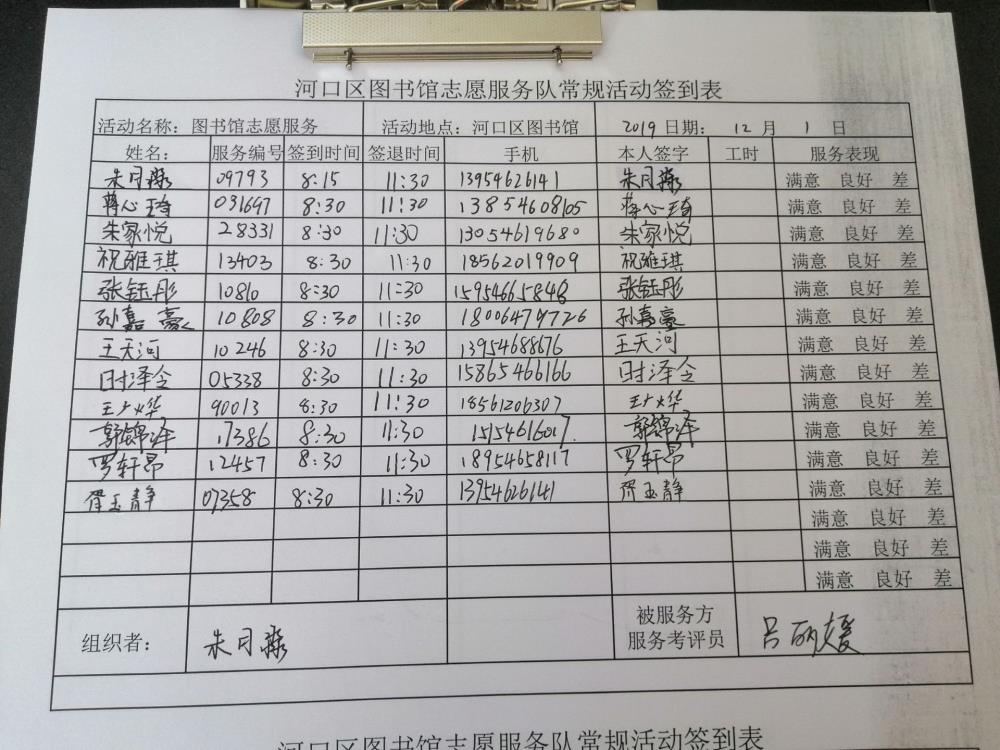 河口区图书馆志愿服务队常规活动签到表
活动名称：图书馆志愿服务 活动地点：河口区图书馆 2019 日期： 12 月 1 日
姓名： 服务编号 签到时间 签退时间 手机 本人签字 工时 服务表现
朱月燕 09793 8:15 11:30 13954626141 朱月燕 满意 良好 差
蒋心琦 031697 8:30 11:30 13854608105 蒋心琦 满意 良好 差
朱家悦 28331 8:30 11:30 13054619680 朱家悦 满意 良好 差
祝雅琪 13403 8:30 11:30 18562019909 祝雅琪 满意 良好 差
张钰彤 10810 8:30 11:30 15954665848 张钰彤 满意 良好 差
孙嘉豪 10808 8:30 11:30 18006479726 孙嘉豪 满意 良好 差
王天河 10246 8:30 11:30 13954688676 王天河 满意 良好 差
时泽令 05338 8:30 11:30 15865466166 时泽令 满意 良好 差
90013 8:30 11:30 18561206307 满意 良好 差
郭锦泽 17386 8:30 11:30 郭锦泽 满意 良好 差
罗轩昂 12457 8:30 11:30 18954658117 罗轩昂 满意 良好 差
胥玉静 07358 8:30 11:30 13954626141 胥玉静 满意 良好 差
满意 良好 差
满意 良好 差
满意 良好 差
组织者： 朱月燕 被服务方 吕丽媛
服务考评员
河口区图书馆志愿服务队常规活动签到表